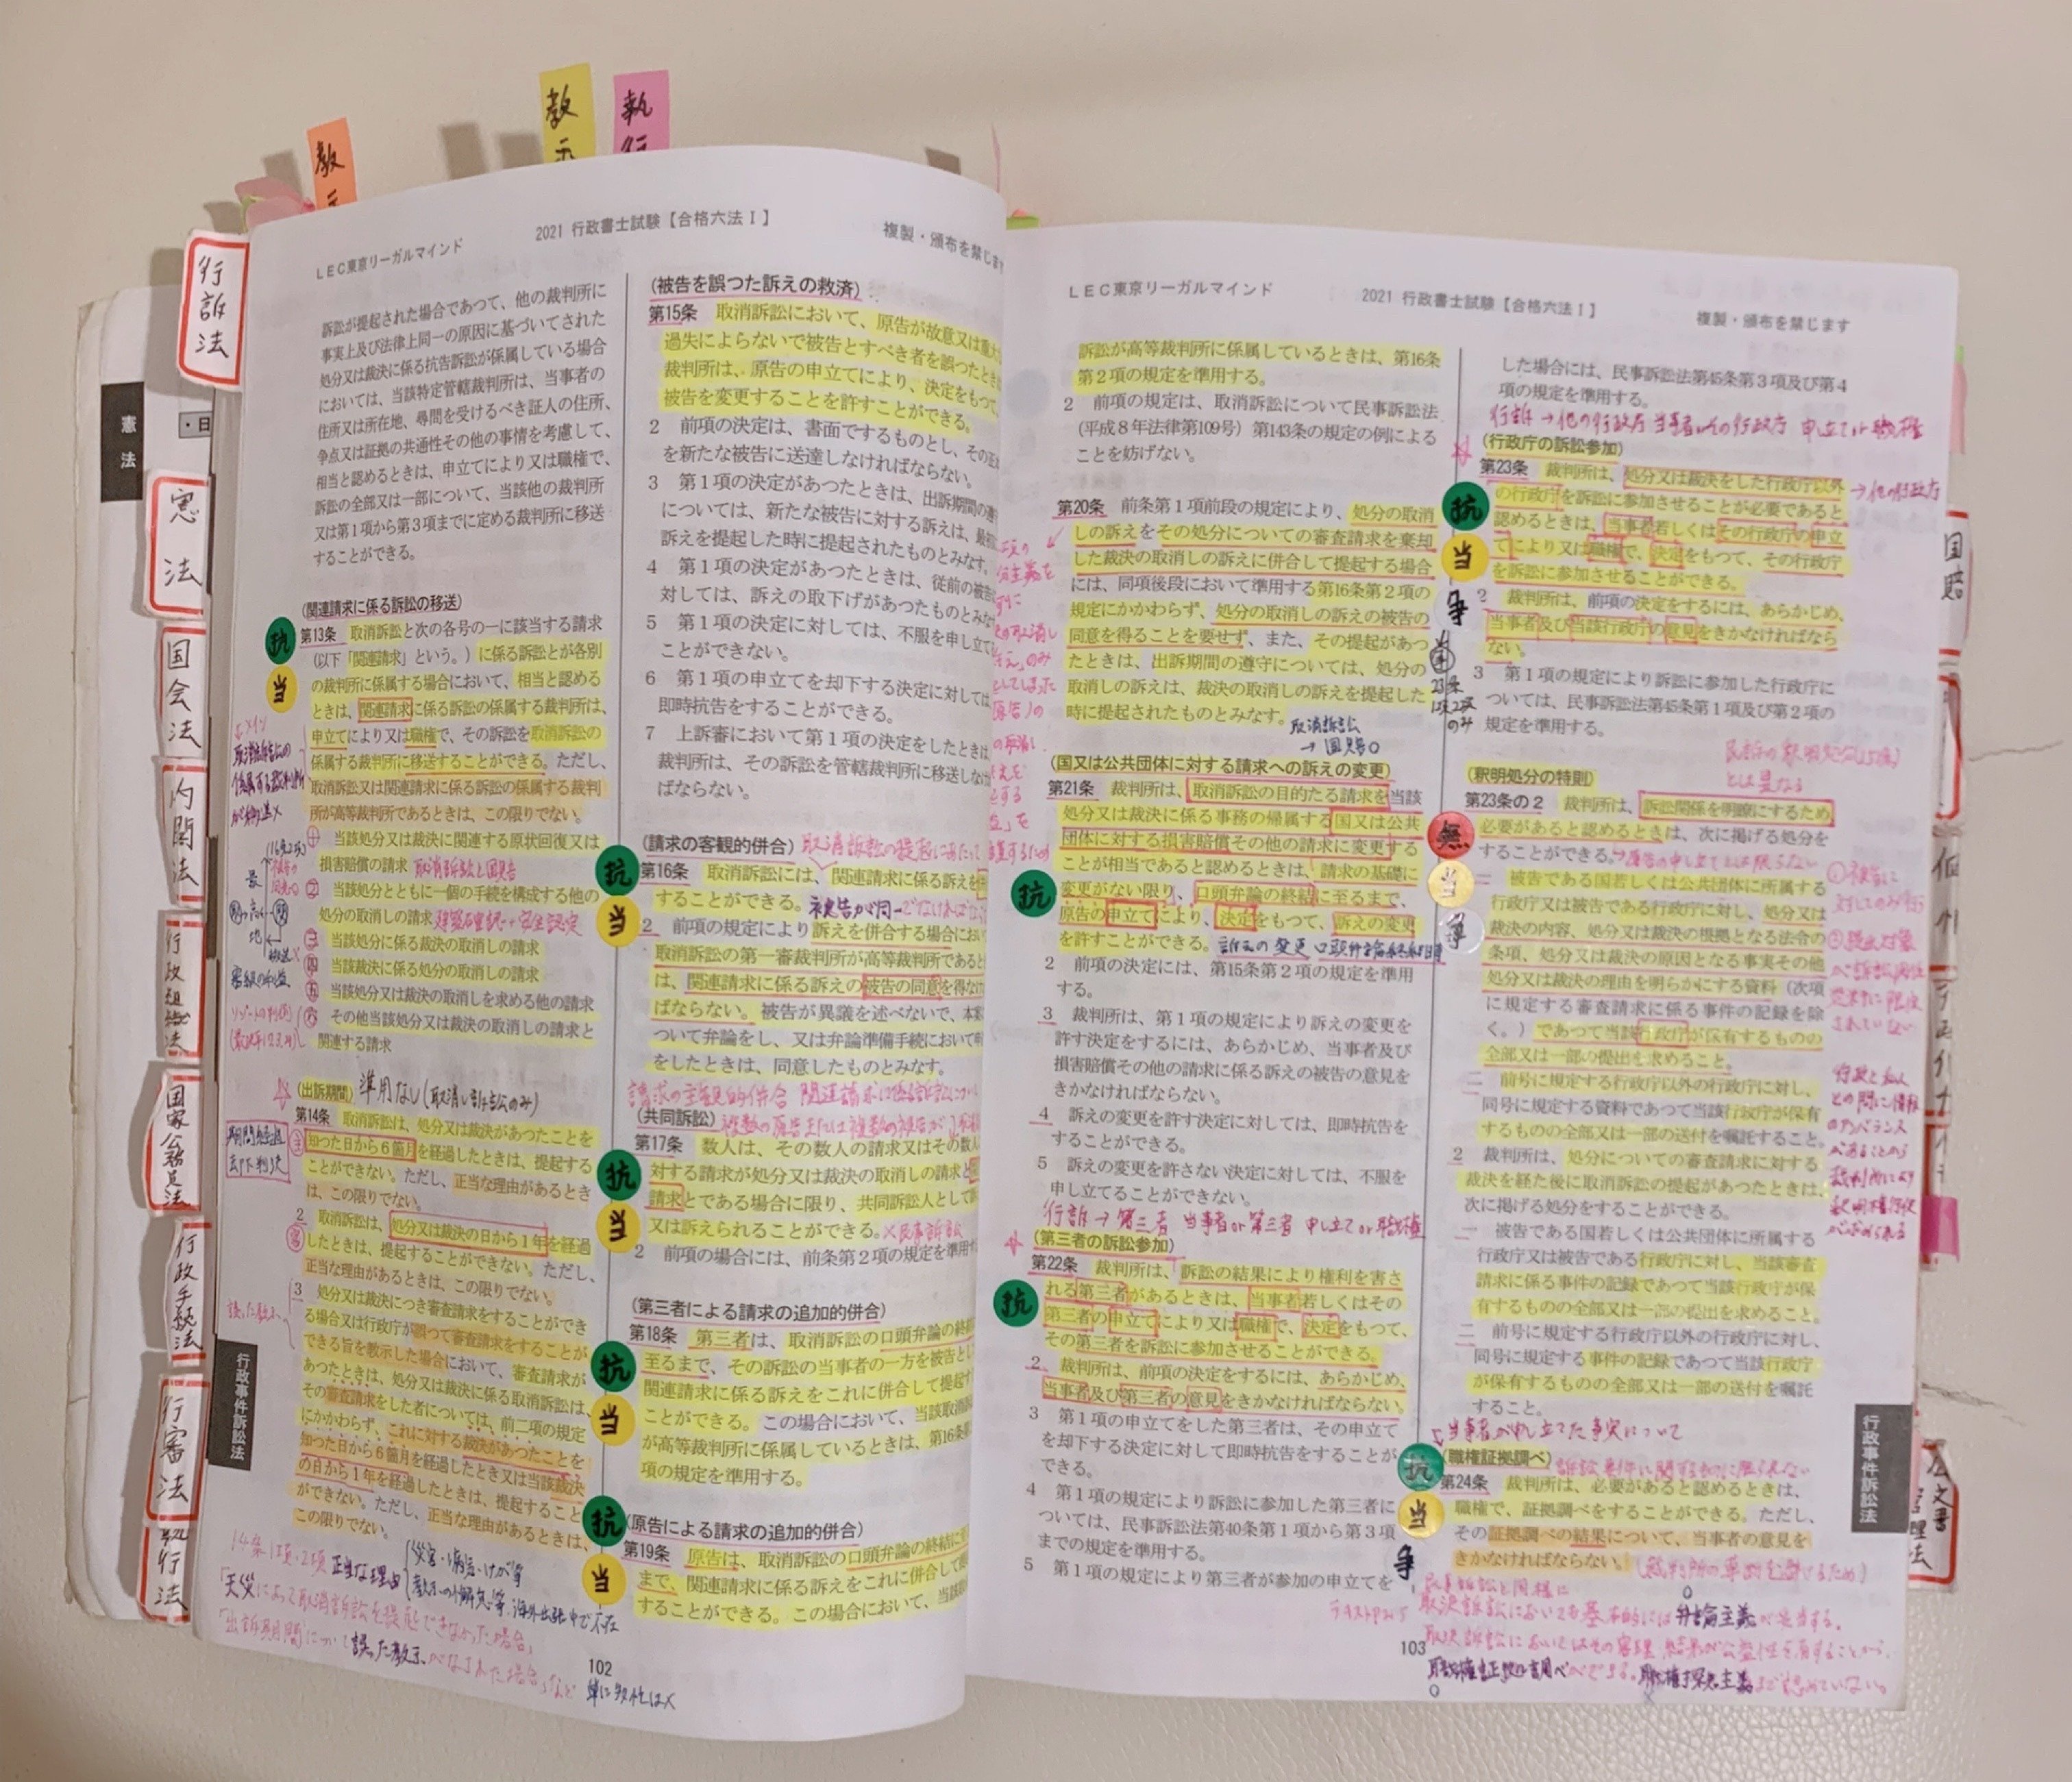 教
示
教
示
執
行
行訴法
憲法
・日
憲法
国会法
内閣法
行政組織法
国家公務員法
行政手続法
行審法
執行法
行政事件訴訟法
LEC東京リーガルマインド
2021 行政書士試験【合格六法Ⅰ】
複製・頒布を禁じます
訴訟が提起された場合であつて、他の裁判所に
事実上及び法律上同一の原因に基づいてされた
処分又は裁決に係る抗告訴訟が係属している場合
においては、当該特定管轄裁判所は、当事者の
住所又は所在地、尋問を受けるべき証人の住所、
争点又は証拠の共通性その他の事情を考慮して、
相当と認めるときは、申立てにより又は職権で、
訴訟の全部又は一部について、当該他の裁判所
又は第1項から第3項までに定める裁判所に移送
することができる。
(関連請求に係る訴訟の移送)
抗
当
第13条 取消訴訟と次の各号の一に該当する請求
(以下「関連請求」という。)に係る訴訟とが各別
の裁判所に係属する場合において、相当と認める
ときは、関連請求に係る訴訟の係属する裁判所は、
申立てにより又は職権で、その訴訟を取消訴訟の
係属する裁判所に移送することができる。ただし、
取消訴訟又は関連請求に係る訴訟の係属する裁判
所が高等裁判所であるときは、この限りでない。
一 当該処分又は裁決に関連する原状回復又は
損害賠償の請求 取消訴訟と国賠
二 当該処分とともに一個の手続を構成する他の
処分の取消しの請求
三 当該処分に係る裁決の取消しの請求
四 当該裁決に係る処分の取消しの請求
五 当該処分又は裁決の取消しを求める他の請求
六 その他当該処分又は裁決の取消しの請求と
関連する請求
(出訴期間) 準用なし(取消し訴訟のみ)
期間経過
却下判決
第14条 取消訴訟は、処分又は裁決があつたことを
知つた日から6箇月を経過したときは、提起する
ことができない。ただし、正当な理由があるとき
は、この限りでない。
2 取消訴訟は、処分又は裁決の日から1年を経過
したときは、提起することができない。ただし、
正当な理由があるときは、この限りでない。
3 処分又は裁決につき審査請求をすることができ
る場合又は行政庁が誤つて審査請求をすることが
できる旨を教示した場合において、審査請求が
あつたときは、処分又は裁決に係る取消訴訟は、
その審査請求をした者については、前二項の規定
にかかわらず、これに対する裁決があつたことを
知つた日から6箇月を経過したとき又は当該裁決
の日から1年を経過したときは、提起すること
ができない。ただし、正当な理由があるときは、
この限りでない。
14条1項・2項 正当な理由
災害・病気・けが等
海外出張中で不在
「天災によって取消訴訟を提起できなかった場合」
「出訴期間について誤った教示がなされた場合」など
102
(被告を誤つた訴えの救済)
第15条 取消訴訟において、原告が故意又は重大
過失によらないで被告とすべき者を誤つたとき
裁判所は、原告の申立てにより、決定をもつて、
被告を変更することを許すことができる。
2 前項の決定は、書面でするものとし、その正
を新たな被告に送達しなければならない。
3 第1項の決定があつたときは、出訴期間の遵
については、新たな被告に対する訴えは、最初
訴えを提起した時に提起されたものとみなす。
4 第1項の決定があつたときは、従前の被告
対しては、訴えの取下げがあつたものとみな
5 第1項の決定に対しては、不服を申し立て
ことができない。
6 第1項の申立てを却下する決定に対しては
即時抗告をすることができる。
7 上訴審において第1項の決定をしたときは
裁判所は、その訴訟を管轄裁判所に移送しなけ
ればならない。
(請求の客観的併合) 取消訴訟の提起にあたって
抗
当
第16条 取消訴訟には、関連請求に係る訴えを併
することができる。
2 前項の規定により訴えを併合する場合におい
取消訴訟の第一審裁判所が高等裁判所であると
は、関連請求に係る訴えの被告の同意を得なけ
ればならない。被告が異議を述べないで、本案
ついて弁論をし、又は弁論準備手続において申
をしたときは、同意したものとみなす。
請求の主観的併合
(共同訴訟)
抗
当
第17条 数人は、その数人の請求又はその数人
対する請求が処分又は裁決の取消しの請求と
請求とである場合に限り、共同訴訟人として訴
又は訴えられることができる。×民事訴訟
2 前項の場合には、前条第2項の規定を準用す
(第三者による請求の追加的併合)
抗
当
第18条 第三者は、取消訴訟の口頭弁論の終結
至るまで、その訴訟の当事者の一方を被告とし
関連請求に係る訴えをこれに併合して提起す
ことができる。この場合において、当該取消訴
が高等裁判所に係属しているときは、第16条第
項の規定を準用する。
(原告による請求の追加的併合)
抗
当
第19条 原告は、取消訴訟の口頭弁論の終結に至
まで、関連請求に係る訴えをこれに併合して提
することができる。この場合において、当該取
LEC東京リーガルマインド
2021 行政書士試験【合格六法Ⅰ】
複製・頒布を禁じます
訴訟が高等裁判所に係属しているときは、第16条
第2項の規定を準用する。
2 前項の規定は、取消訴訟について民事訴訟法
(平成8年法律第109号)第143条の規定の例による
ことを妨げない。
第20条 前条第1項前段の規定により、処分の取消
しの訴えをその処分についての審査請求を棄却
した裁決の取消しの訴えに併合して提起する場合
には、同項後段において準用する第16条第2項の
規定にかかわらず、処分の取消しの訴えの被告の
同意を得ることを要せず、また、その提起があつ
たときは、出訴期間の遵守については、処分の
取消しの訴えは、裁決の取消しの訴えを提起した
時に提起されたものとみなす。
取消訴訟
→国賠○
(国又は公共団体に対する請求への訴えの変更)
抗
第21条 裁判所は、取消訴訟の目的たる請求を当該
処分又は裁決に係る事務の帰属する国又は公共
団体に対する損害賠償その他の請求に変更する
ことが相当であると認めるときは、請求の基礎に
変更がない限り、口頭弁論の終結に至るまで、
原告の申立てにより、決定をもつて、訴えの変更
を許すことができる。
2 前項の決定には、第15条第2項の規定を準用
する。
3 裁判所は、第1項の規定により訴えの変更を
許す決定をするには、あらかじめ、当事者及び
損害賠償その他の請求に係る訴えの被告の意見を
きかなければならない。
4 訴えの変更を許す決定に対しては、即時抗告を
することができる。
5 訴えの変更を許さない決定に対しては、不服を
申し立てることができない。
行訴→第三者 当事者or第三者 申し立てor職権
(第三者の訴訟参加)
抗
第22条 裁判所は、訴訟の結果により権利を害さ
れる第三者があるときは、当事者若しくはその
第三者の申立てにより又は職権で、決定をもつて、
その第三者を訴訟に参加させることができる。
2 裁判所は、前項の決定をするには、あらかじめ、
当事者及び第三者の意見をきかなければならない。
3 第1項の申立てをした第三者は、その申立て
を却下する決定に対して即時抗告をすることが
できる。
4 第1項の規定により訴訟に参加した第三者に
ついては、民事訴訟法第40条第1項から第3項
までの規定を準用する。
5 第1項の規定により第三者が参加の申立てを
103
した場合には、民事訴訟法第45条第3項及び第4
項の規定を準用する。
行訴→他の行政庁 当事者orその行政庁 申立てor職権
(行政庁の訴訟参加)
抗
当
争
第23条 裁判所は、処分又は裁決をした行政庁以外
の行政庁を訴訟に参加させることが必要であると
→他の行政庁
認めるときは、当事者若しくはその行政庁の申立
てにより又は職権で、決定をもつて、その行政庁
を訴訟に参加させることができる。
2 裁判所は、前項の決定をするには、あらかじめ、
当事者及び当該行政庁の意見をきかなければなら
ない。
3 第1項の規定により訴訟に参加した行政庁に
ついては、民事訴訟法第45条第1項及び第2項の
規定を準用する。
とは異なる
(釈明処分の特則)
無
当
争
第23条の2 裁判所は、訴訟関係を明瞭にするため、
必要があると認めるときは、次に掲げる処分を
することができる。→原告の申し立てとは限らない
一 被告である国若しくは公共団体に所属する
行政庁又は被告である行政庁に対し、処分又は
裁決の内容、処分又は裁決の根拠となる法令の
条項、処分又は裁決の原因となる事実その他
処分又は裁決の理由を明らかにする資料(次項
に規定する審査請求に係る事件の記録を除
く。)であつて当該行政庁が保有するものの
全部又は一部の提出を求めること。
二 前号に規定する行政庁以外の行政庁に対し、
同号に規定する資料であつて当該行政庁が保有
するものの全部又は一部の送付を嘱託すること。
2 裁判所は、処分についての審査請求に対する
裁決を経た後に取消訴訟の提起があつたときは、
次に掲げる処分をすることができる。
一 被告である国若しくは公共団体に所属する
行政庁又は被告である行政庁に対し、当該審査
請求に係る事件の記録であつて当該行政庁が保
有するものの全部又は一部の提出を求めること。
二 前号に規定する行政庁以外の行政庁に対し、
同号に規定する事件の記録であつて当該行政庁
が保有するものの全部又は一部の送付を嘱託
すること。
(職権証拠調べ)
抗
当
争
第24条 裁判所は、必要があると認めるときは、
職権で、証拠調べをすることができる。ただし、
その証拠調べの結果について、当事者の意見を
きかなければならない。
民事訴訟と同様に
取消訴訟においても基本的には弁論主義が妥当する。
職権証拠調べができる。職権探知主義まで認めていない。
行政事件訴訟法
国賠